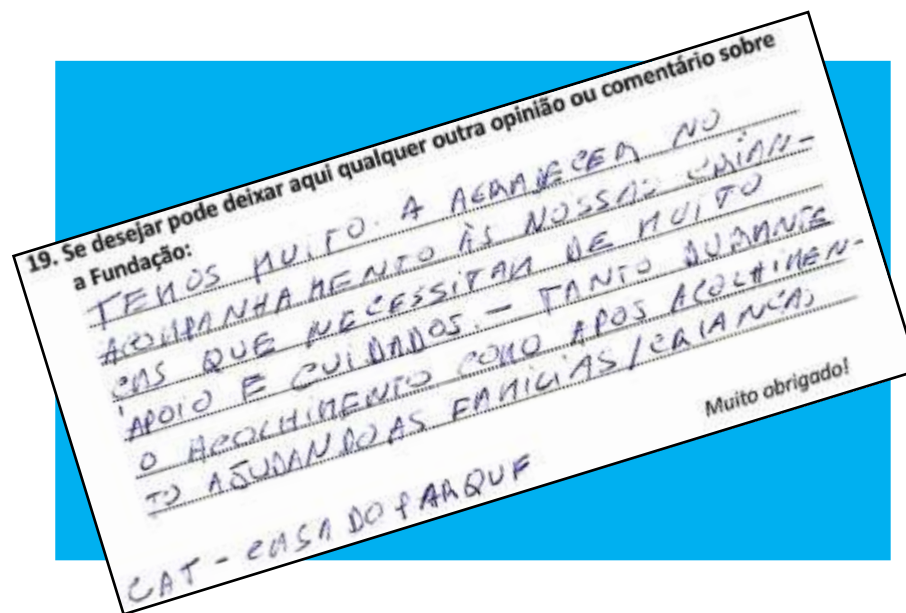 19. Se desejar pode deixar aqui qualquer outra opinião ou comentário sobre
a Fundação:
TEMOS MUITO. A AGRADECER NO
ACOMPANHAMENTO ÀS NOSSAS CRIAN-
ÇAS QUE NECESSITAM DE MUITO
APOIO E CUIDADOS. - TANTO DURANTE
O ACOLHIMENTO COMO APOS ACOLHIMEN-
TO AJUDANDO AS FAMILIAS/CRIANÇAS
Muito obrigado!
CAT - CASA DO PARQUE